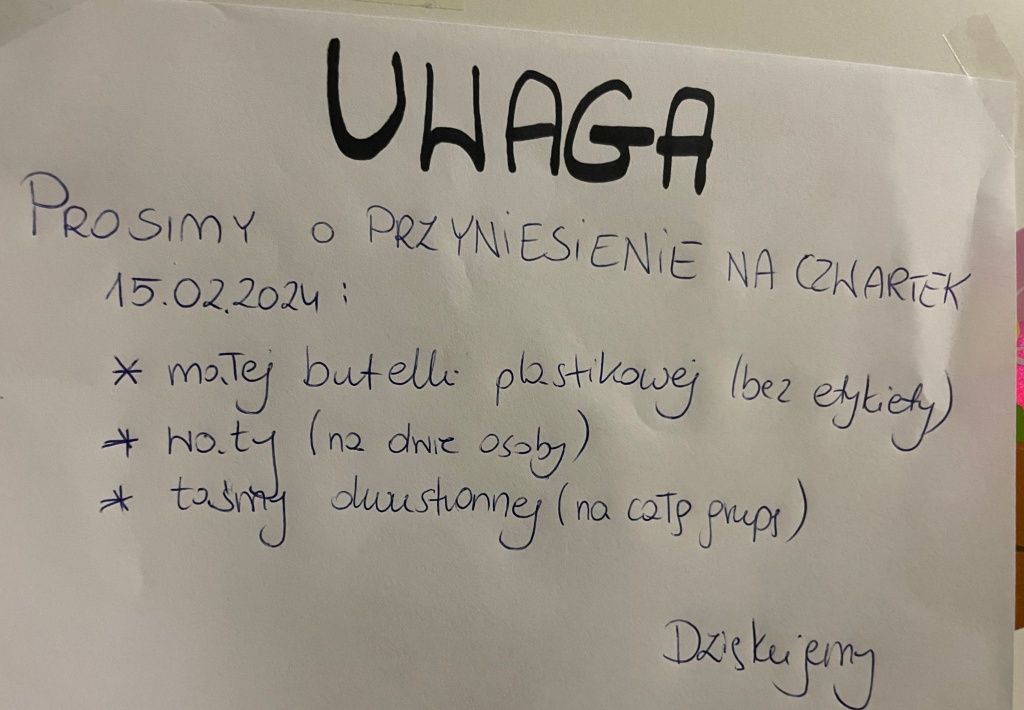 UWAGA
PROSIMY O PRZYNIESIENIE NA CZWARTEK
15.02.2024:
* małej butelki plastikowej (bez etykiety)
* waty (na dwie osoby)
* taśmy dwustronnej (na całą grupę)
Dziękujemy